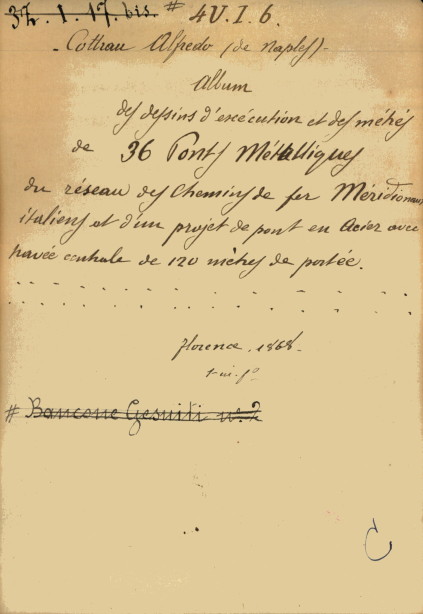 37. I. 17. bis. # 4V. I. 6.
Cottrau Alfredo (de Naples)-
Album
des dessins d'exécution et des métrés
de 36 Ponts Métalliques
du réseau des Chemins de fer Méridionaux
italiens et d'un projet de pont en Acier avec
travée centrale de 120 mètres de portée.
Florence. 1868.
1-in-fo
# Bancone Gesuiti no. 2
C